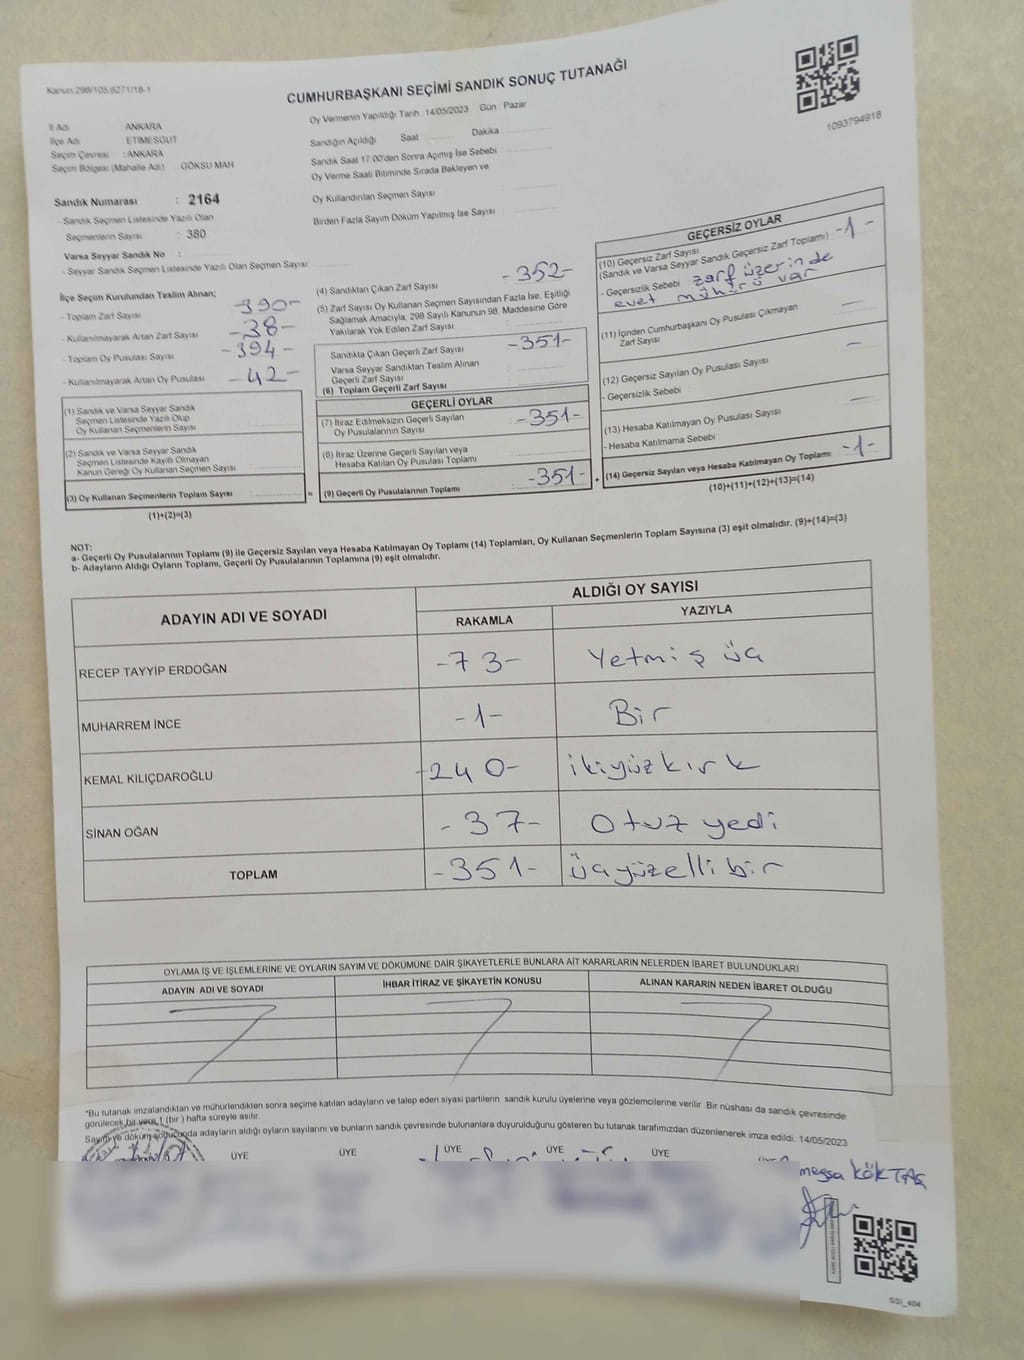 Kanun.298/105.6271/18-1
CUMHURBAŞKANI SEÇİMİ SANDIK SONUÇ TUTANAĞI
1093794918
İl Adı ANKARA
İlçe Adı ETİMESGUT
Seçim Çevresi : ANKARA
Seçim Bölgesi (Mahalle Adı) GÖKSU MAH
Sandık Numarası : 2164
- Sandık Seçmen Listesinde Yazılı Olan
Seçmenlerin Sayısı : 380
Varsa Seyyar Sandık No :
- Seyyar Sandık Seçmen Listesinde Yazılı Olan Seçmen Sayısı
Oy Vermenin Yapıldığı Tarih : 14/05/2023 Gün : Pazar
Sandığın Açıldığı Saat Dakika
Sandık Saat 17:00'den Sonra Açımış İse Sebebi
Oy Verme Saati Bitiminde Sırada Bekleyen ve
Oy Kullandırılan Seçmen Sayısı
Birden Fazla Sayım Döküm Yapılmış İse Sayısı
İlçe Seçim Kurulundan Teslim Alınan;
- Toplam Zarf Sayısı -390-
- Kullanılmayarak Artan Zarf Sayısı -38-
- Toplam Oy Pusulası Sayısı -394-
- Kullanılmayarak Artan Oy Pusulası -42-
(1) Sandık ve Varsa Seyyar Sandık
Seçmen Listesinde Yazılı Olup
Oy Kullanan Seçmenlerin Sayısı
(2) Sandık ve Varsa Seyyar Sandık
Seçmen Listesinde Kayıtlı Olmayan
Kanun Gereği Oy Kullanan Seçmen Sayısı
(3) Oy Kullanan Seçmenlerin Toplam Sayısı
(1)+(2)=(3)
(4) Sandıktan Çıkan Zarf Sayısı -352-
(5) Zarf Sayısı Oy Kullanan Seçmen Sayısından Fazla İse, Eşitliği
Sağlamak Amacıyla, 298 Sayılı Kanunun 98. Maddesine Göre
Yakılarak Yok Edilen Zarf Sayısı
Sandıkta Çıkan Geçerli Zarf Sayısı -351-
Varsa Seyyar Sandıktan Teslim Alınan
Geçerli Zarf Sayısı
(6) Toplam Geçerli Zarf Sayısı
GEÇERLİ OYLAR
(7) İtiraz Edilmeksizin Geçerli Sayılan
Oy Pusulalarının Sayısı -351-
(8) İtiraz Üzerine Geçerli Sayılan veya
Hesaba Katılan Oy Pusulası Toplamı
= (9) Geçerli Oy Pusulalarının Toplamı : -351- +
GEÇERSİZ OYLAR
(10) Geçersiz Zarf Sayısı
(Sandık ve Varsa Seyyar Sandık Geçersiz Zarf Toplamı) -1-
- Geçersizlik Sebebi zarf üzerinde
evet mührü var
(11) İçinden Cumhurbaşkanı Oy Pusulası Çıkmayan
Zarf Sayısı —
(12) Geçersiz Sayılan Oy Pusulası Sayısı —
- Geçersizlik Sebebi :
(13) Hesaba Katılmayan Oy Pusulası Sayısı —
- Hesaba Katılmama Sebebi
(14) Geçersiz Sayılan veya Hesaba Katılmayan Oy Toplamı -1-
(10)+(11)+(12)+(13)=(14)
NOT:
a- Geçerli Oy Pusulalarının Toplamı (9) ile Geçersiz Sayılan veya Hesaba Katılmayan Oy Toplamı (14) Toplamları, Oy Kullanan Seçmenlerin Toplam Sayısına (3) eşit olmalıdır. (9)+(14)=(3)
b- Adayların Aldığı Oyların Toplamı, Geçerli Oy Pusulalarının Toplamına (9) eşit olmalıdır.
ADAYIN ADI VE SOYADI
ALDIĞI OY SAYISI
RAKAMLA YAZIYLA
RECEP TAYYİP ERDOĞAN -73- Yetmiş üç
MUHARREM İNCE -1- Bir
KEMAL KILIÇDAROĞLU -240- ikiyüzkırk
SİNAN OĞAN -37- Otuz yedi
TOPLAM -351- üçyüzelli bir
OYLAMA İŞ VE İŞLEMLERİNE VE OYLARIN SAYIM VE DÖKÜMÜNE DAİR ŞİKAYETLERLE BUNLARA AİT KARARLARIN NELERDEN İBARET BULUNDUKLARI
ADAYIN ADI VE SOYADI İHBAR İTİRAZ VE ŞİKAYETİN KONUSU ALINAN KARARIN NEDEN İBARET OLDUĞU
"Bu tutanak imzalandıktan ve mühürlendikten sonra seçime katılan adayların ve talep eden siyasi partilerin sandık kurulu üyelerine veya gözlemcilerine verilir. Bir nüshası da sandık çevresinde
görülecek bir yere 1 (bir) hafta süreyle asılır.
Sayım ve döküm sonucunda adayların aldığı oyların sayılarını ve bunların sandık çevresinde bulunanlara duyurulduğunu gösteren bu tutanak tarafımızdan düzenlenerek imza edildi. 14/05/2023
ÜYE ÜYE ÜYE ÜYE ÜYE
KÖKTAŞ
SSI_404